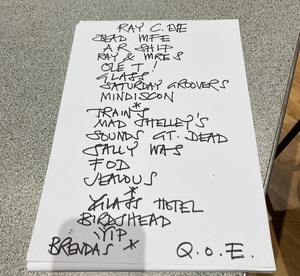 RAY C. EVE
DEAD WIFE
AR SHIP
RAY & MRES
OLE T!
GLASS
SATURDAY GROOVERS
MINDISCON
*
TRAINS
MAD SHELLEY'S
SOUNDS GT. DEAD
SALLY WAS
FOD
JEALOUS
*
GLASS HOTEL
BIRDSHEAD
YIP
BRENDAS * Q.O.E.